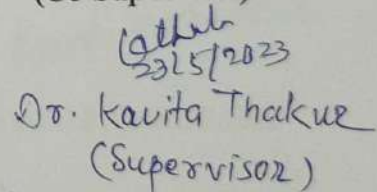 23/5/2023
Dr. Kavita Thakur
(Supervisor)